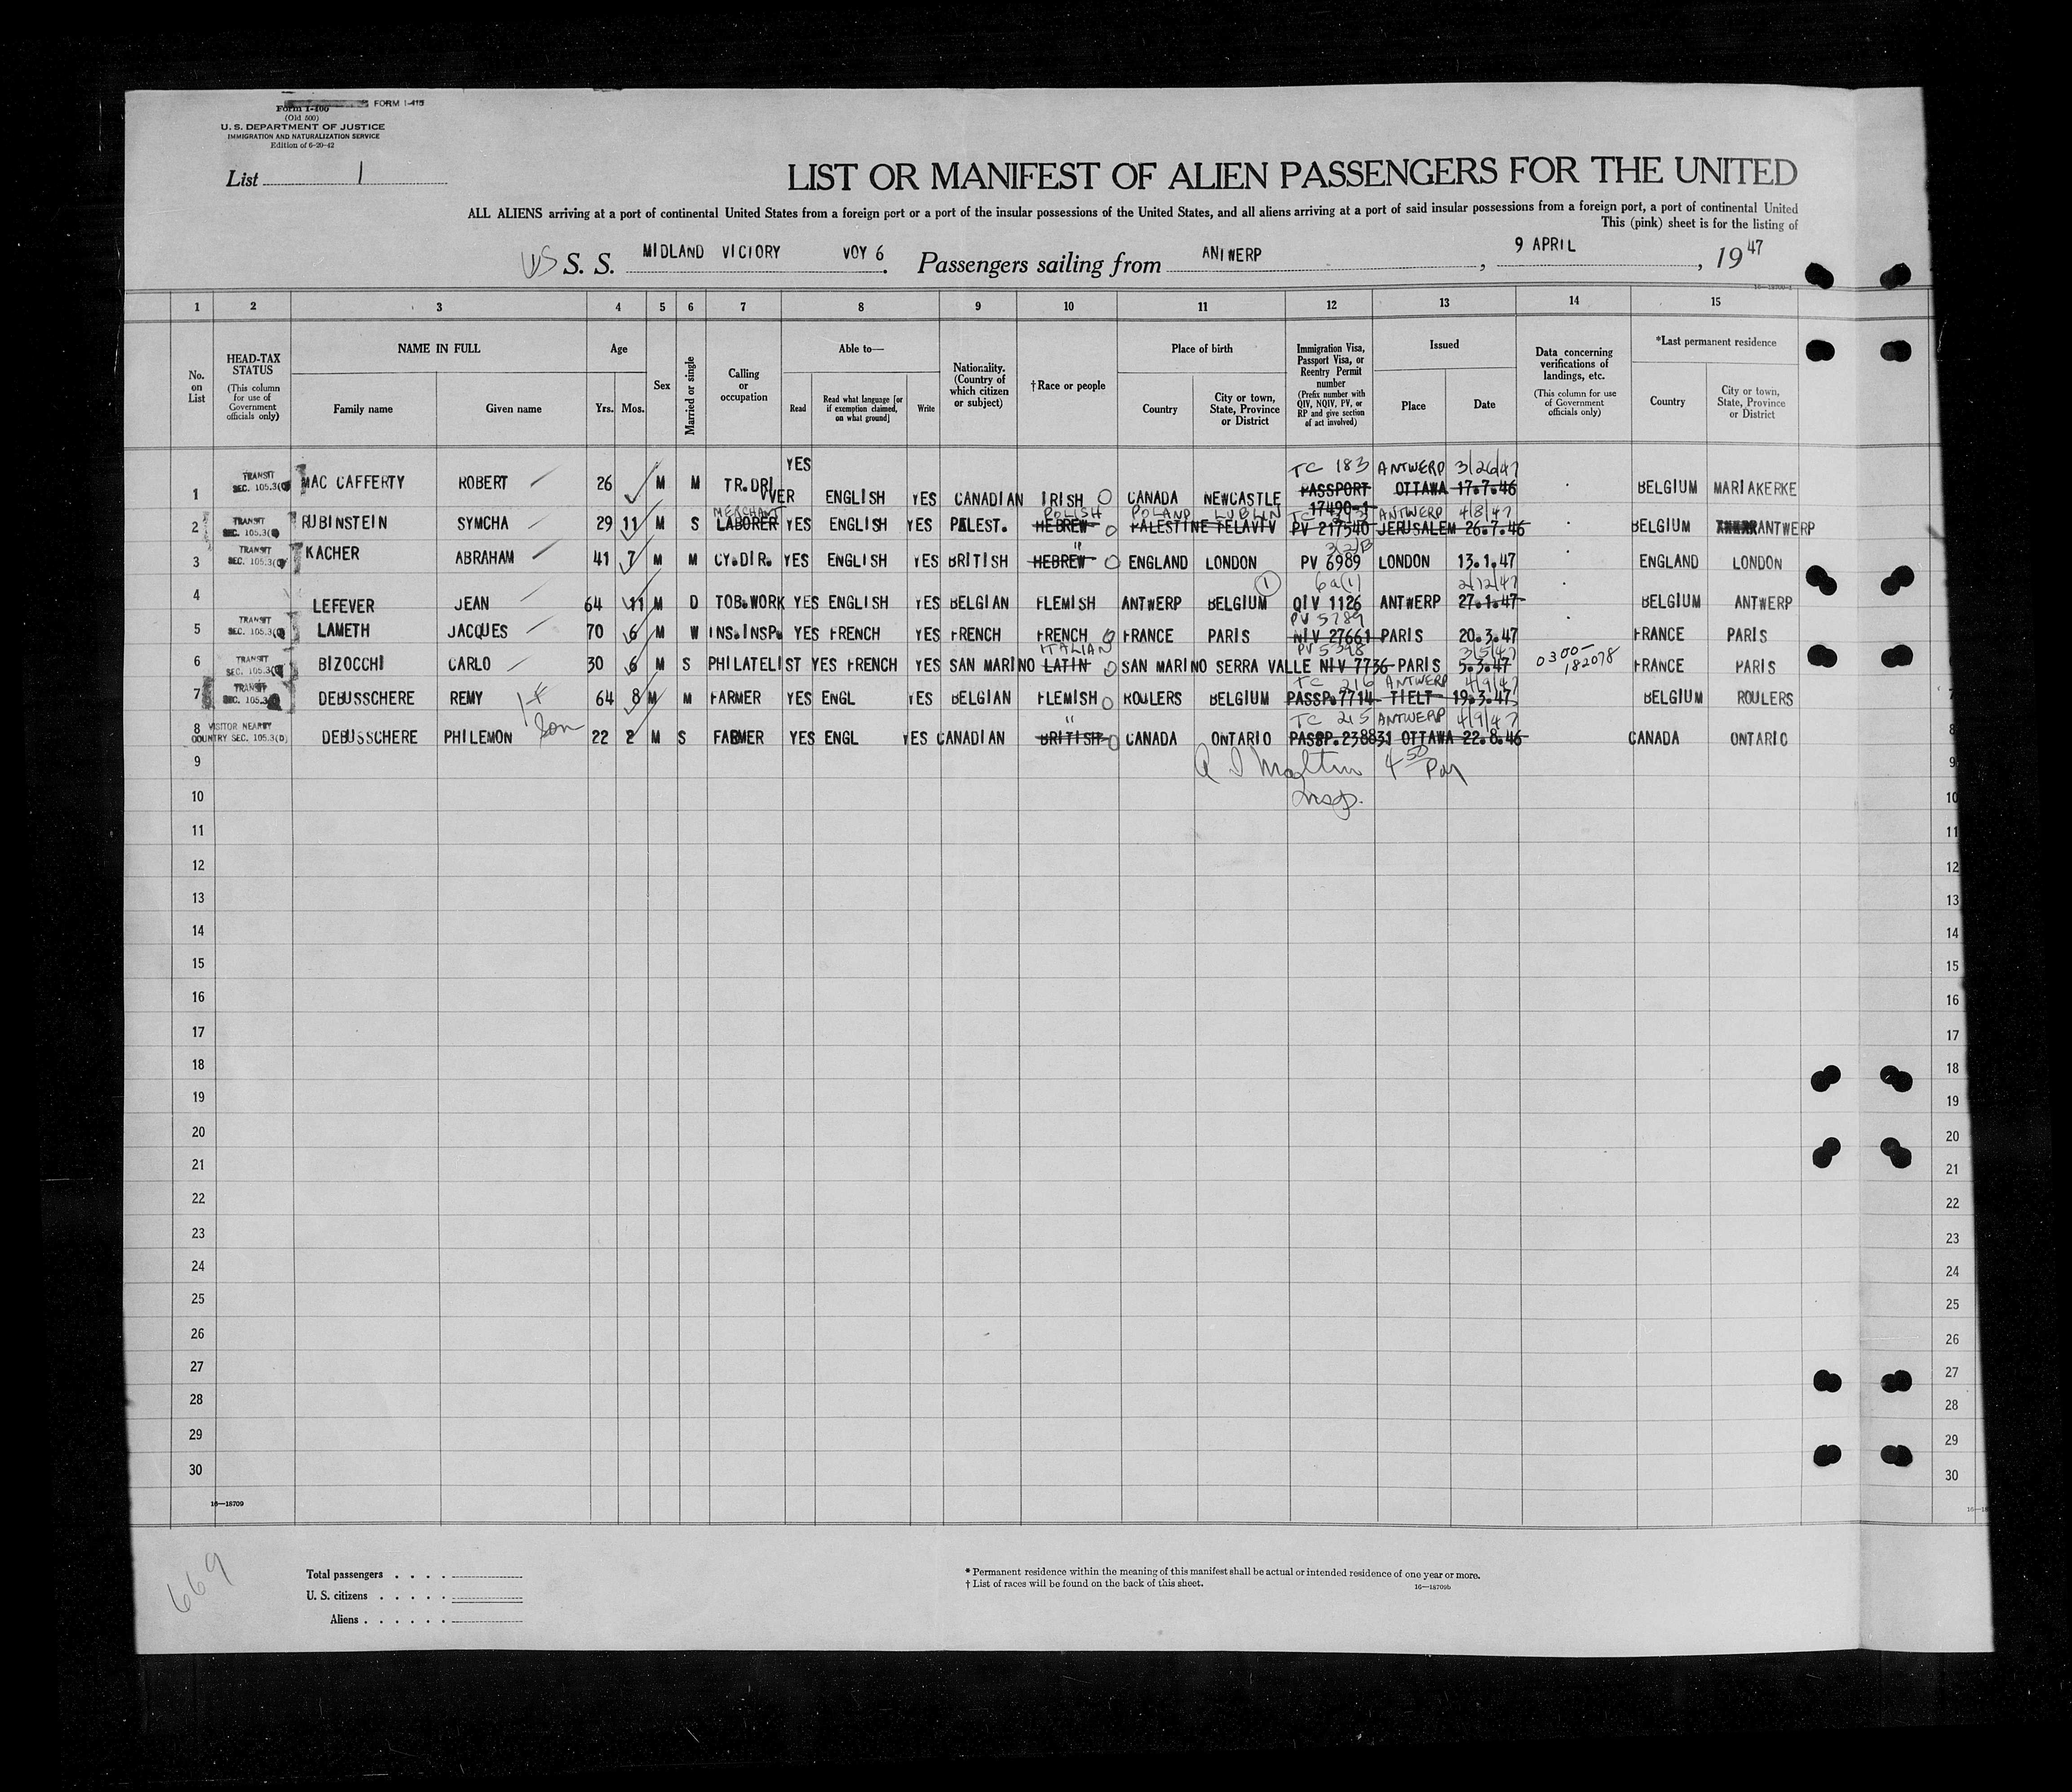 Form I-100 FORM I-415
(Old 500)
U. S. DEPARTMENT OF JUSTICE
IMMIGRATION AND NATURALIZATION SERVICE
Edition of 6-29-42
List 1
LIST OR MANIFEST OF ALIEN PASSENGERS FOR THE UNITED
ALL ALIENS arriving at a port of continental United States from a foreign port or a port of the insular possessions of the United States, and all aliens arriving at a port of said insular possessions from a foreign port, a port of continental United
This (pink) sheet is for the listing of
US S. S. MIDLAND VICTORY VOY 6. Passengers sailing from ANTWERP, 9 APRIL, 19 47
1 2 3 4 5 6 7 8 9 10 11 12 13 14 15
No. on List
HEAD-TAX STATUS (This column for use of Government officials only)
NAME IN FULL
Family name Given name
Age
Yrs. Mos.
Sex
Married or single
Calling or occupation
Able to—
Read
Read what language [or if exemption claimed, on what ground]
Write
Nationality. (Country of which citizen or subject)
† Race or people
Place of birth
Country
City or town, State, Province or District
Immigration Visa, Passport Visa, or Reentry Permit number (Prefix number with QIV, NQIV, PV, or RP and give section of act involved)
Issued
Place Date
Data concerning verifications of landings, etc. (This column for use of Government officials only)
*Last permanent residence
Country
City or town, State, Province or District
YES
TC 183 ANTWERP 3/26/47
1 TRANSIT SEC. 105.3 MAC CAFFERTY ROBERT 26 M M TR.DRIVER ENGLISH YES CANADIAN IRISH CANADA NEWCASTLE PASSPORT 17490-1 OTTAWA 17.7.46 BELGIUM MARIAKERKE
MERCHANT POLISH POLAND LUBLIN TC ANTWERP 4/8/47
2 TRANSIT SEC. 105.3 RUBINSTEIN SYMCHA 29 11 M S LABORER YES ENGLISH YES PALEST. HEBREW PALESTINE TELAVIV PV 217540 JERUSALEM 26.7.46 BELGIUM ANTWERP
" 3(2)B
3 TRANSIT SEC. 105.3 KACHER ABRAHAM 41 7 M M CY.DIR. YES ENGLISH YES BRITISH HEBREW ENGLAND LONDON PV 6989 LONDON 13.1.47 ENGLAND LONDON
1 6a(1) 2/12/47
4 LEFEVER JEAN 64 11 M D TOB.WORK YES ENGLISH YES BELGIAN FLEMISH ANTWERP BELGIUM QIV 1126 ANTWERP 27.1.47 BELGIUM ANTWERP
PV 5789
5 TRANSIT SEC. 105.3 LAMETH JACQUES 70 6 M W INS.INSP. YES FRENCH YES FRENCH FRENCH FRANCE PARIS NIV 27661 PARIS 20.3.47 FRANCE PARIS
ITALIAN PV 5398 3/5/47
6 TRANSIT SEC. 105.3 BIZOCCHI CARLO 30 6 M S PHILATELIST YES FRENCH YES SAN MARINO LATIN SAN MARINO SERRA VALLE NIV 7736 PARIS 5.3.47 0300-182078 FRANCE PARIS
TC 216 ANTWERP 4/9/47
7 TRANSIT SEC. 105.3 DEBUSSCHERE REMY 64 8 M M FARMER YES ENGL YES BELGIAN FLEMISH ROULERS BELGIUM PASSP.7714 TIELT 19.3.47 BELGIUM ROULERS 7
Son " TC 215 ANTWERP 4/9/47
8 VISITOR NEARBY COUNTRY SEC. 105.3(D) DEBUSSCHERE PHILEMON 22 2 M S FARMER YES ENGL YES CANADIAN BRITISH CANADA ONTARIO PASSP.238831 OTTAWA 22.8.46 CANADA ONTARIO 8
9 4 50 PM 9
10 Insp. 10
11 11
12 12
13 13
14 14
15 15
16 16
17 17
18 18
19 19
20 20
21 21
22 22
23 23
24 24
25 25
26 26
27 27
28 28
29 29
30 30
16—18709
669
Total passengers . . . .
U. S. citizens . . . . .
Aliens . . . . . .
* Permanent residence within the meaning of this manifest shall be actual or intended residence of one year or more.
† List of races will be found on the back of this sheet. 16—18709b